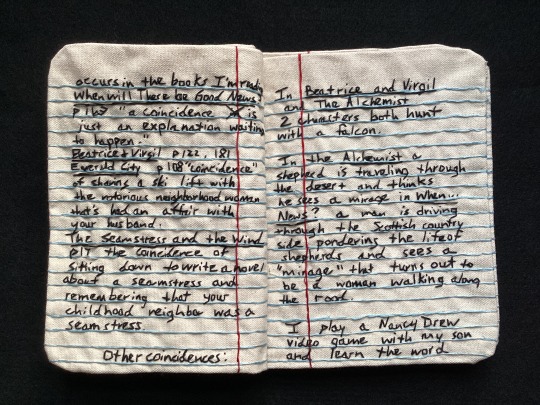 occurs in the books I'm reading
When will There be Good News?
p167 "a coincidence is
just an explanation waiting
to happen."
Beatrice & Virgil p122, 181
Everild City p108 "coincidence"
of sharing a ski lift with
the notorious neighborhood woman
that's had an affair with
your husband.
The Seamstress and the Wind
p17 the coincidence of
sitting down to write a novel
about a seamstress and
remembering that your
childhood neighbor was a
seamstress.
Other coincidences:
In Beatrice and Virgil
and The Alchemist
2 characters both hunt
with a falcon.
In the Alchemist a
shepherd is traveling through
the desert and thinks
he sees a mirage in When...
News? a man is driving
through the Scottish country
side pondering the life of
shepherds and sees a
"mirage" that turns out to
be a woman walking along
the road.
I play a Nancy Drew
video game with my son
and learn the word